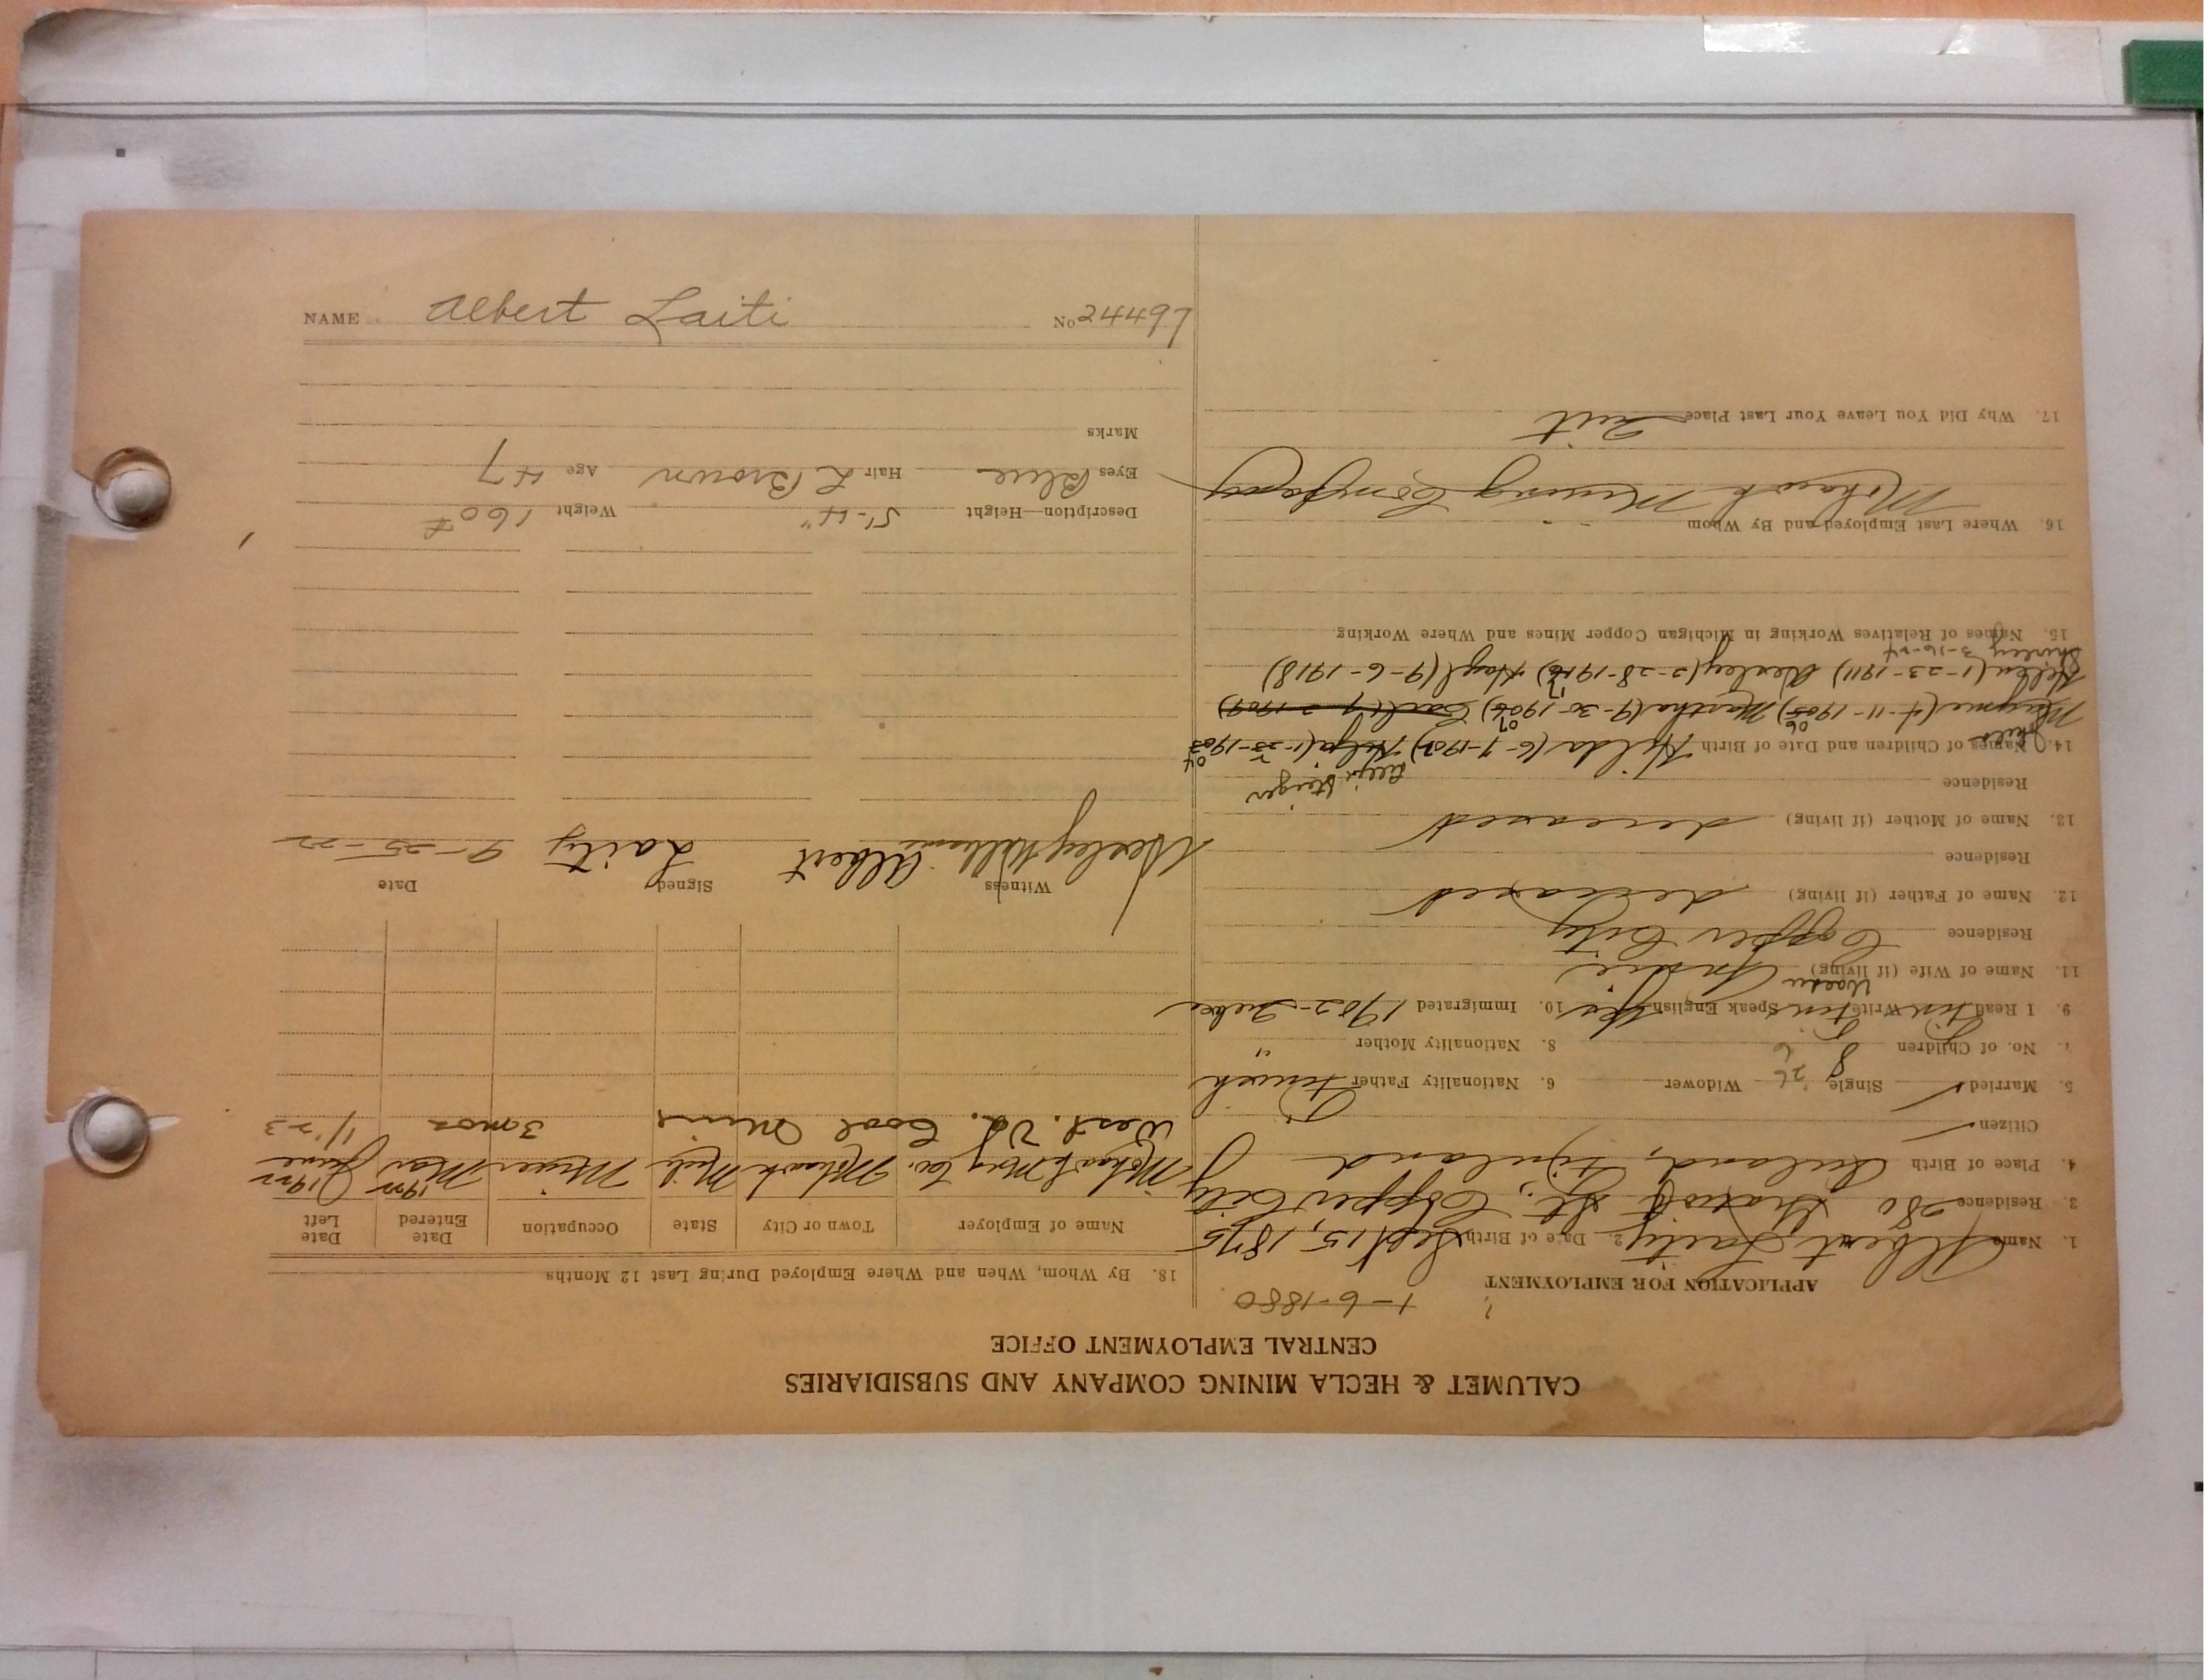 CALUMET & HECLA MINING COMPANY AND SUBSIDIARIES
CENTRAL EMPLOYMENT OFFICE
APPLICATION FOR EMPLOYMENT ? 1-6-1880
1. Name Albert Laity 2. Date of Birth Sept 15, 1875
3. Residence 280 Gratiot St., Copper City
4. Place of Birth Finland
Citizen
5. Married Single Widower 6. Nationality Father Finnish
7. No. of Children 8 8. Nationality Mother "
9. I Read Finn Write Finn Speak English Yes 10. Immigrated 1902
11. Name of Wife (if living)
Residence Copper City
12. Name of Father (if living) deceased
Residence
13. Name of Mother (if living) deceased
Residence
14. Names of Children and Date of Birth Hilda (6-7-1902) Helja (1-23-1903 04
Mayme (4-11-1905) 06 Martha (9-30-1906) 07 Earl (
Helen (1-23-1911) Wesley (2-28-1916) 17 Hazel (9-6-1918)
Shirley 3-16-24
15. Names of Relatives Working in Michigan Copper Mines and Where Working
16. Where Last Employed and By Whom
Mohawk Mining Company
17. Why Did You Leave Your Last Place Quit
18. By Whom, When and Where Employed During Last 12 Months
Name of Employer Town or City State Occupation Date Entered Date Left
Mohawk Mng Co. Mohawk Mich Miner Mar 1922 June 1922
West. Va. Coal Mine 3 mos 1/23
Witness Signed Date
Wesley Williams Albert Laity 9-25-22
Description—Height 5'-4" Weight 160#
Eyes Blue Hair L Brown Age 47
Marks
NAME Albert Laiti No 24497